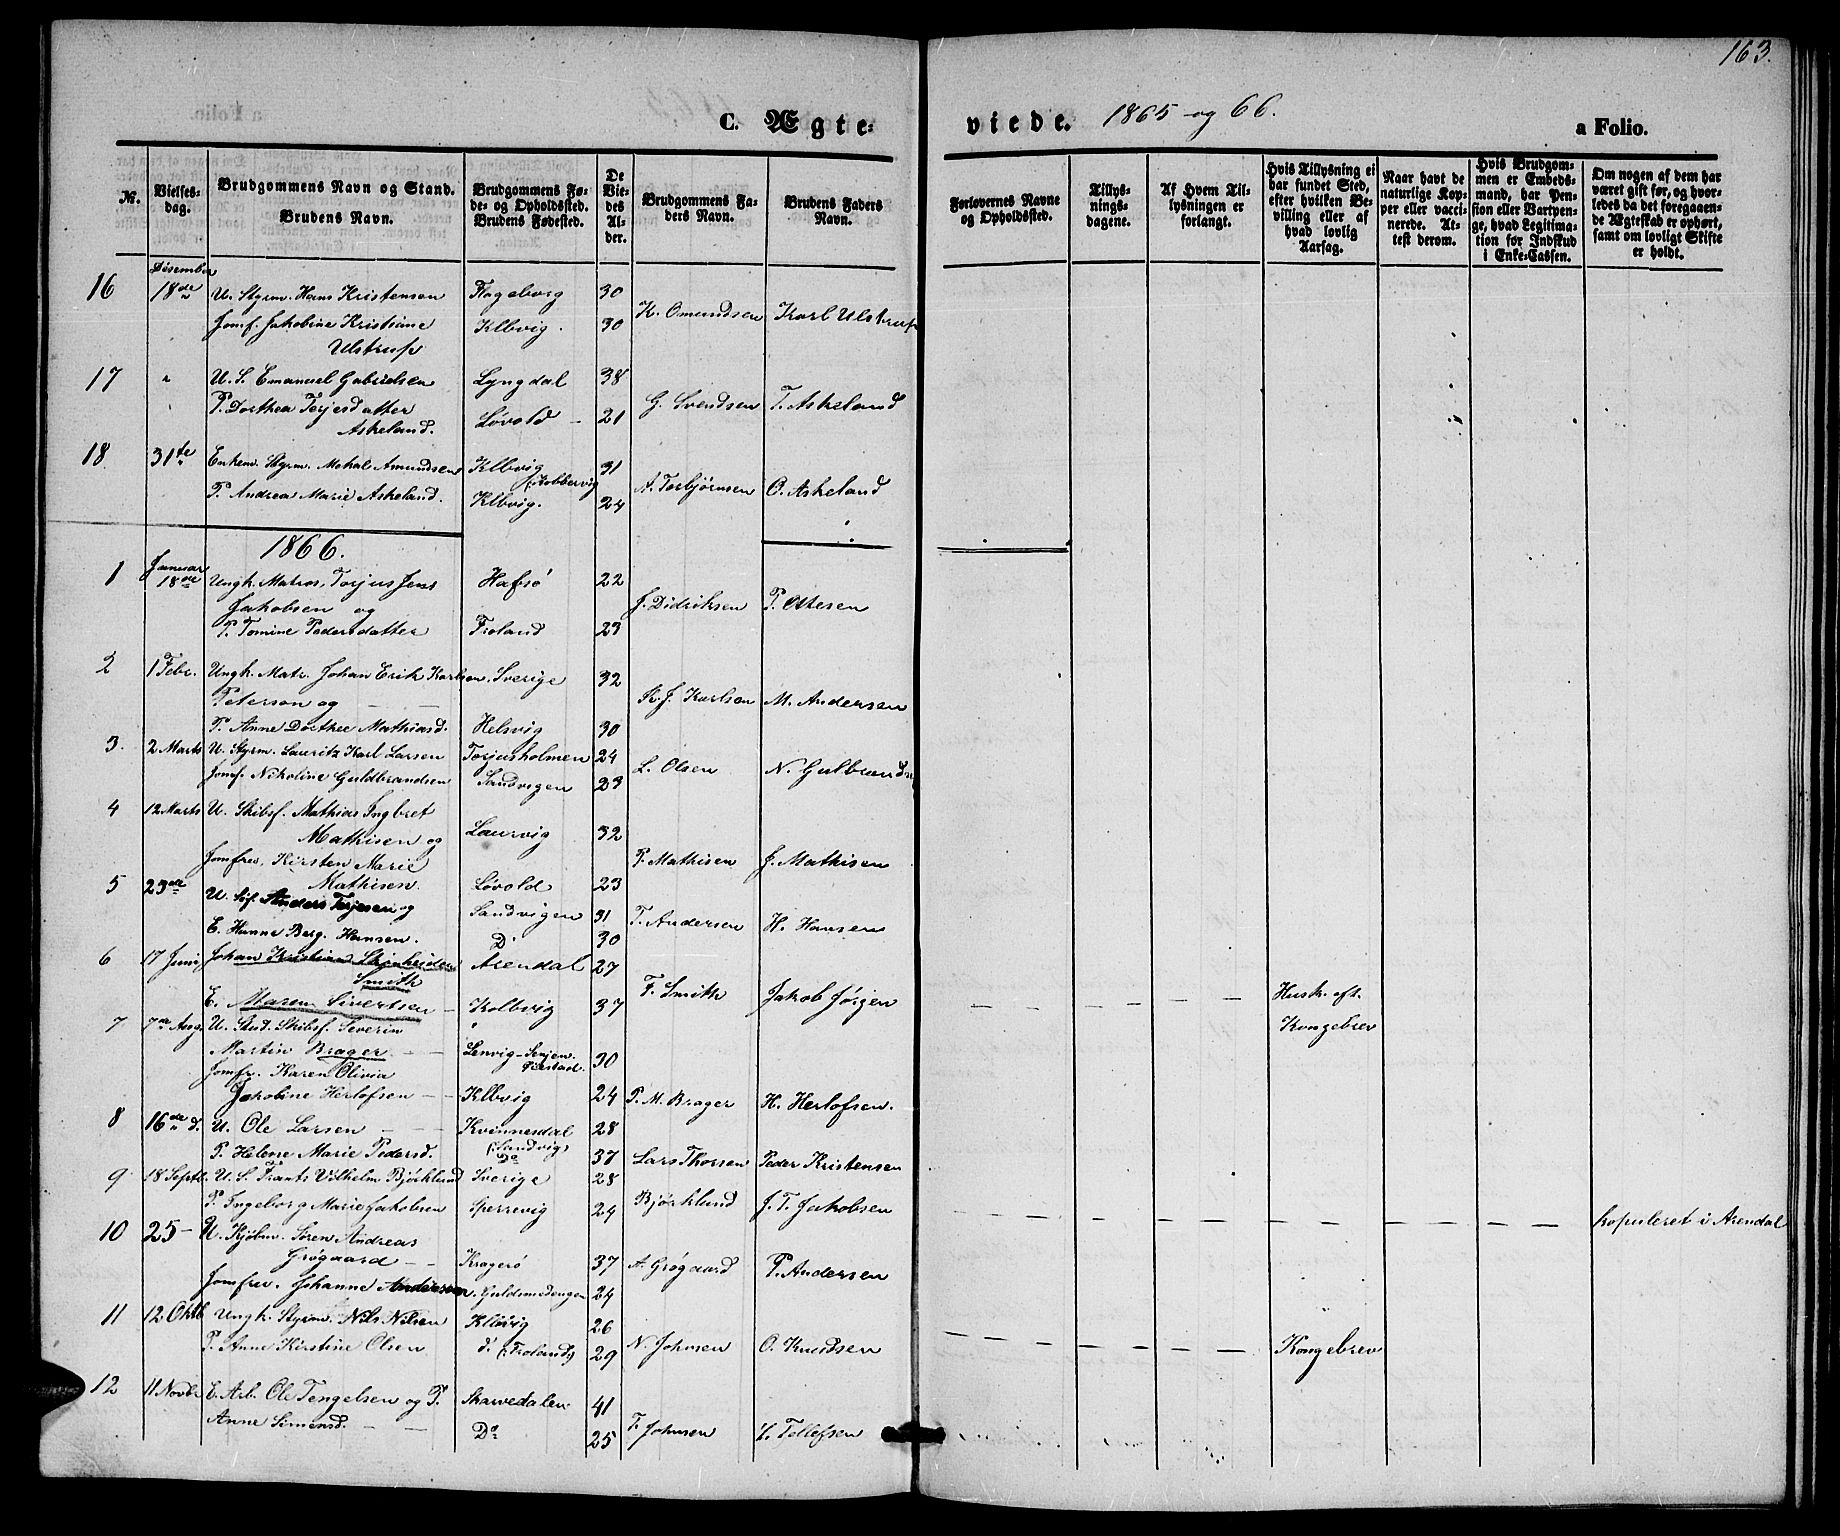 163.
C. Ægte-
viede. 1865 og 66.
a Folio.
№.
Vielses-
dag.
Brudgommens Navn og Stand.
Brudens Navn.
Brudgommens Fø-
de- og Opholdssted.
Brudens Fødested.
De
Vie-
des
Al-
der.
Brudgommens Fa-
ders Navn.
Brudens Faders
Navn.
Forlovernes Navne
og Opholdssted.
Tillys-
nings-
dagene.
Af Hvem Til-
lysningen er
forlangt.
Hvis Tillysning ei
har fundet Sted,
efter hvilken Be-
villing eller af
hvad lovlig
Aarsag.
Naar havt de
naturlige Kop-
per eller vacci-
nerede. At-
test derom.
Hvis Brudgom-
men er Embeds-
mand, har Pen-
sion eller Vartpen-
ge, hvad Legitima-
tion for Indskud
i Enke-Cassen.
Om nogen af dem har
været gift før, og hvor-
ledes da det foregaaen-
de Ægteskab er ophørt,
samt om lovligt Skifte
er holdt.
Desember
16 18de U. Styrm. Hans Kristensen Flageborg 30 K. Omundsen Karl Ulstrup
Jomf. Jakobine Kristiane Klbvig. 30
Ulstrup
17 " U. S. Emanuel Gabrielsen Lyngdal 38 G. Svendsen T. Askeland
P. Dorthea Terjesdatter Løvold - 21
Askeland.
18 31te Enkem. Styrm. Mekal Amundsen Klbvig 31 A. Torbjørnsen O. Askeland
(Kobbervig
P. Andrea Marie Askeland. Klbvig. 24
1866.
Januar
1 18de Ungk. Matros, Torjus Jens Hafsø 22 J. Didriksen P. Ottesen
Jakobsen og
P. Tomine Pedersdatter Froland 23
2 1 Febr. Ungk. Matr. Johan Erik Karlson Sverige 32 K. J. Karlson M. Andersen
Peterson og — —
P. Anne Dorthee Mathiasd. Helsvig 30
3. 2 Marts U. Styrm. Lauritz Karl Larsen Torjusholmen 24 L. Olsen N. Gulbrands
Jomf. Nikoline Guldbrandsen Sandvigen 23
4 12 Marts U. Skibsf. Mathias Ingbret
Mathisen og Laurvig 32 P. Mathisen J. Mathisen
Jomfru, Kirsten Marie
Mathisen. Løvold 23
5 23de U. Søf. Anders Terjesen og Sandvigen 31 T. Andersen H. Hansen
E. Hanne Berg. Hansen. Do 30
6 17 Juni Johan Kristian Arendal 27 F. Smith Jakob Jørgen — — — — Husk. eft.
Smith
E. Maren Sivertsen — Kolbvig 37 Kongebrev
7 7de Aug. U. Skibsf. Severin "
Martin Brager — — Lenvig - Senjen. 30 P. M. Brager H. Herlofsen.
Jomfr. Karen Olivia
Jakobine Herlofsen — — Klbvig 24
8 16de d. U. Ole Larsen — — Kvinnesdal 28 Lars Thorsen Peder Kristensen
(Sandvig)
P. Helene Marie Pedersd. Do 37
9 18 Septr. U. S. Frants Vilhelm Bjørklund Sverige 28 Bjørklund J. T. Jakobsen — — — — — — — kopuleret i Arendal
P. Ingeborg Marie Jakobsen Sperrevig 24
10 25 — U. Kjøbm. Søren Andreas
Grøgaard — — Kragerø 37 A. Grøgaard P. Andersen
Jomfru. Johanne Andersen. Guldsmedengen 24
11 12 Oktb. Ungk. Styrm. Nils Nilsen Klbvig 26 N. Johnsen O. Knudsen — — — — Kongebrev
P. Anne Kirstine Olsen d. (Froland) 29
12 11 Novbr E. Arb. Ole Tengelsen og P. Skarvedalen 41 T. Johnsen Z. Tellefsen
Anne Simensd. — — Do 25